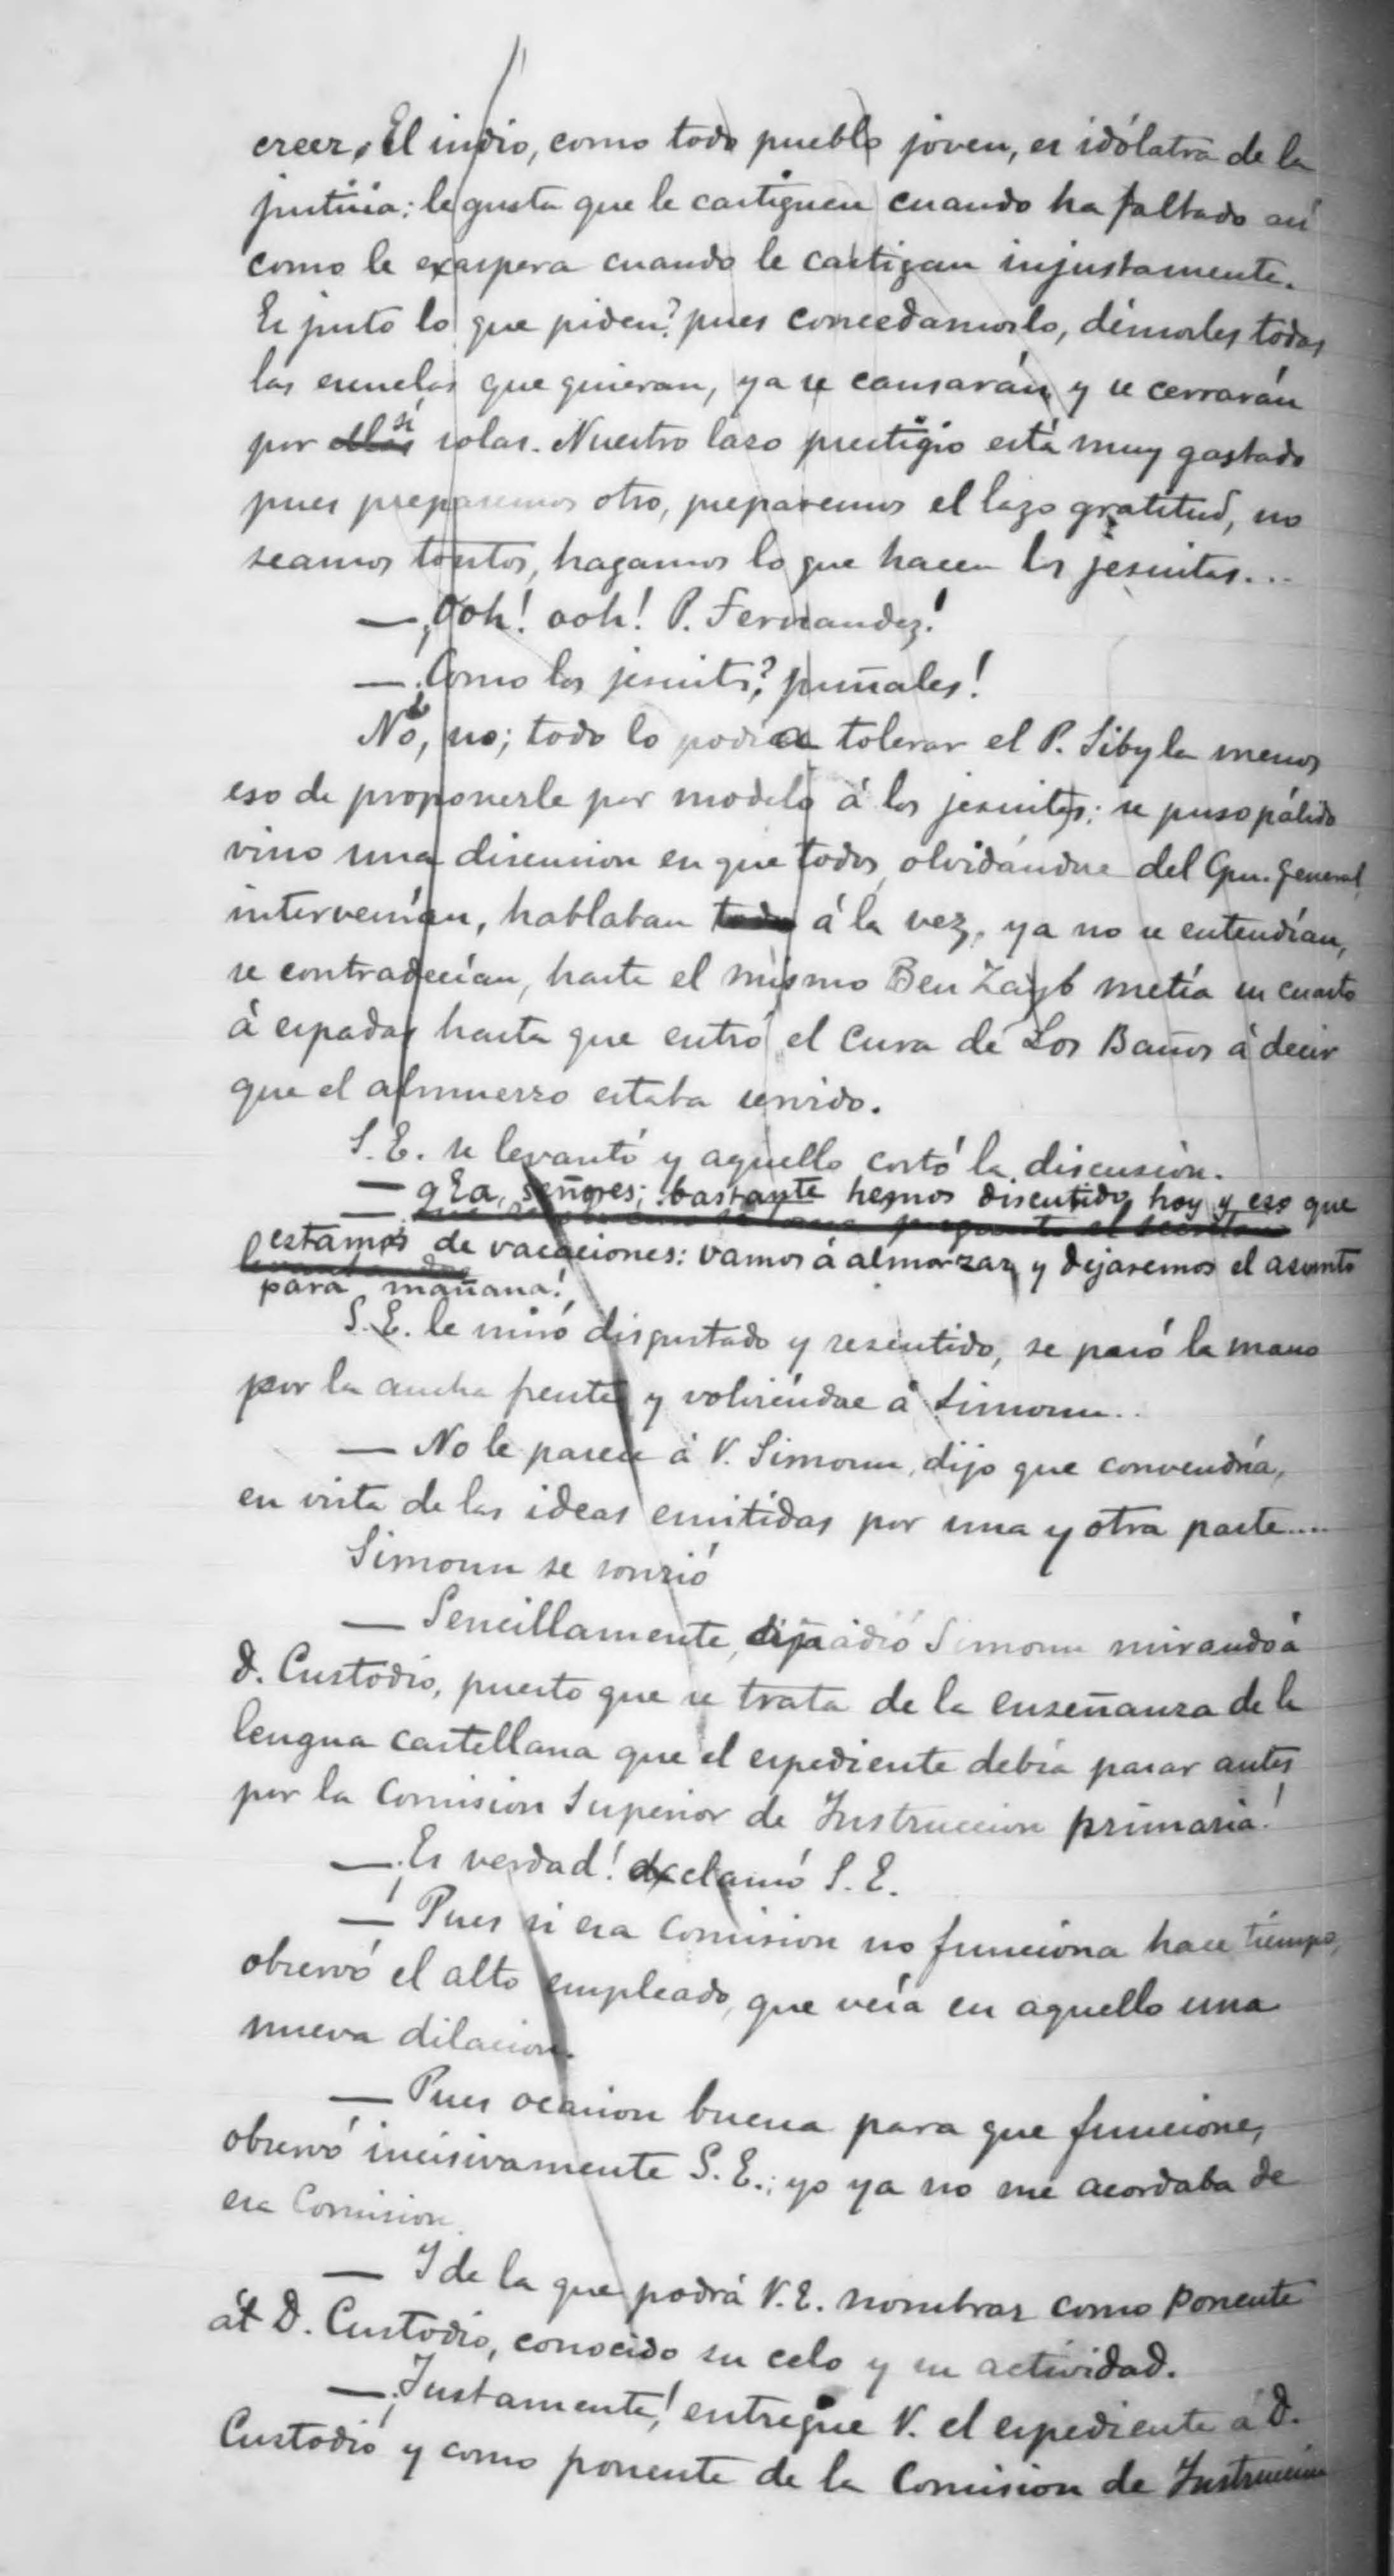 creer. El indio, como todo pueblo joven, es idólatra de la
justicia: le gusta que le castiguen cuando ha faltado así
como le exaspera cuando le castigan injustamente.
Es justo lo que piden? pues concedamoslo, démosles todas
las escuelas que quieran, ya se cansarán y se cerrarán
por ellas sí solas. Nuestro lazo prestigio está muy gastado
pues preparemos otro, preparemos el lazo gratitud, no
seamos tontos, hagamos lo que hacen los jesuitas...
— ¡Ooh! ooh! P. Fernandez!
— ¿Como los jesuits? puñales!
No, no; todo lo podia tolerar el P. Sibyla menos
eso de proponerle por modelo á los jesuitas; se puso pálido
vino una discusion en que todos, olvidándose del Gen. general,
intervenían, hablaban todos á la vez, ya no se entendían,
se contradecían, hasta el mismo Ben Zayb metía su cuarto
á espadas hasta que entró el cura de Los Baños á decir
que el almuerzo estaba servido.
S. E. se levantó y aquello cortó la discusión.
— Ea, señores; bastante hemos discutido hoy y eso que
estamos de vacaciones: vamos á almorzar y dejaremos el asunto
para mañana!
S. E. le miró disgustado y resentido, se pasó la mano
por la ancha frente y volviéndose á Simoun..
— No le parece á V. Simoun, dijo que convendría,
en vista de las ideas emitidas por una y otra parte....
Simoun se sonrió
— Sencillamente, añadió Simoun mirando á
D. Custodio, puesto que se trata de la enseñanza de la
lengua castellana que el espediente debía pasar antes
por la Comision Superior de Instruccion primaria!
— ¡Es verdad! exclamó S. E.
— Pues si esa comision no funciona hace tiempo,
observó el alto empleado, que veía en aquello una
nueva dilacion.
— Pues ocasion buena para que funcione,
observó incisivamente S. E.; yo ya no me acordaba de
esa Comision.
— Y de la que podrá V. E. nombrar como ponente
á D. Custodio, conocido su celo y su actividad.
— ¡Justamente! entregue V. el espediente á D.
Custodio y como ponente de la Comision de Instruccion